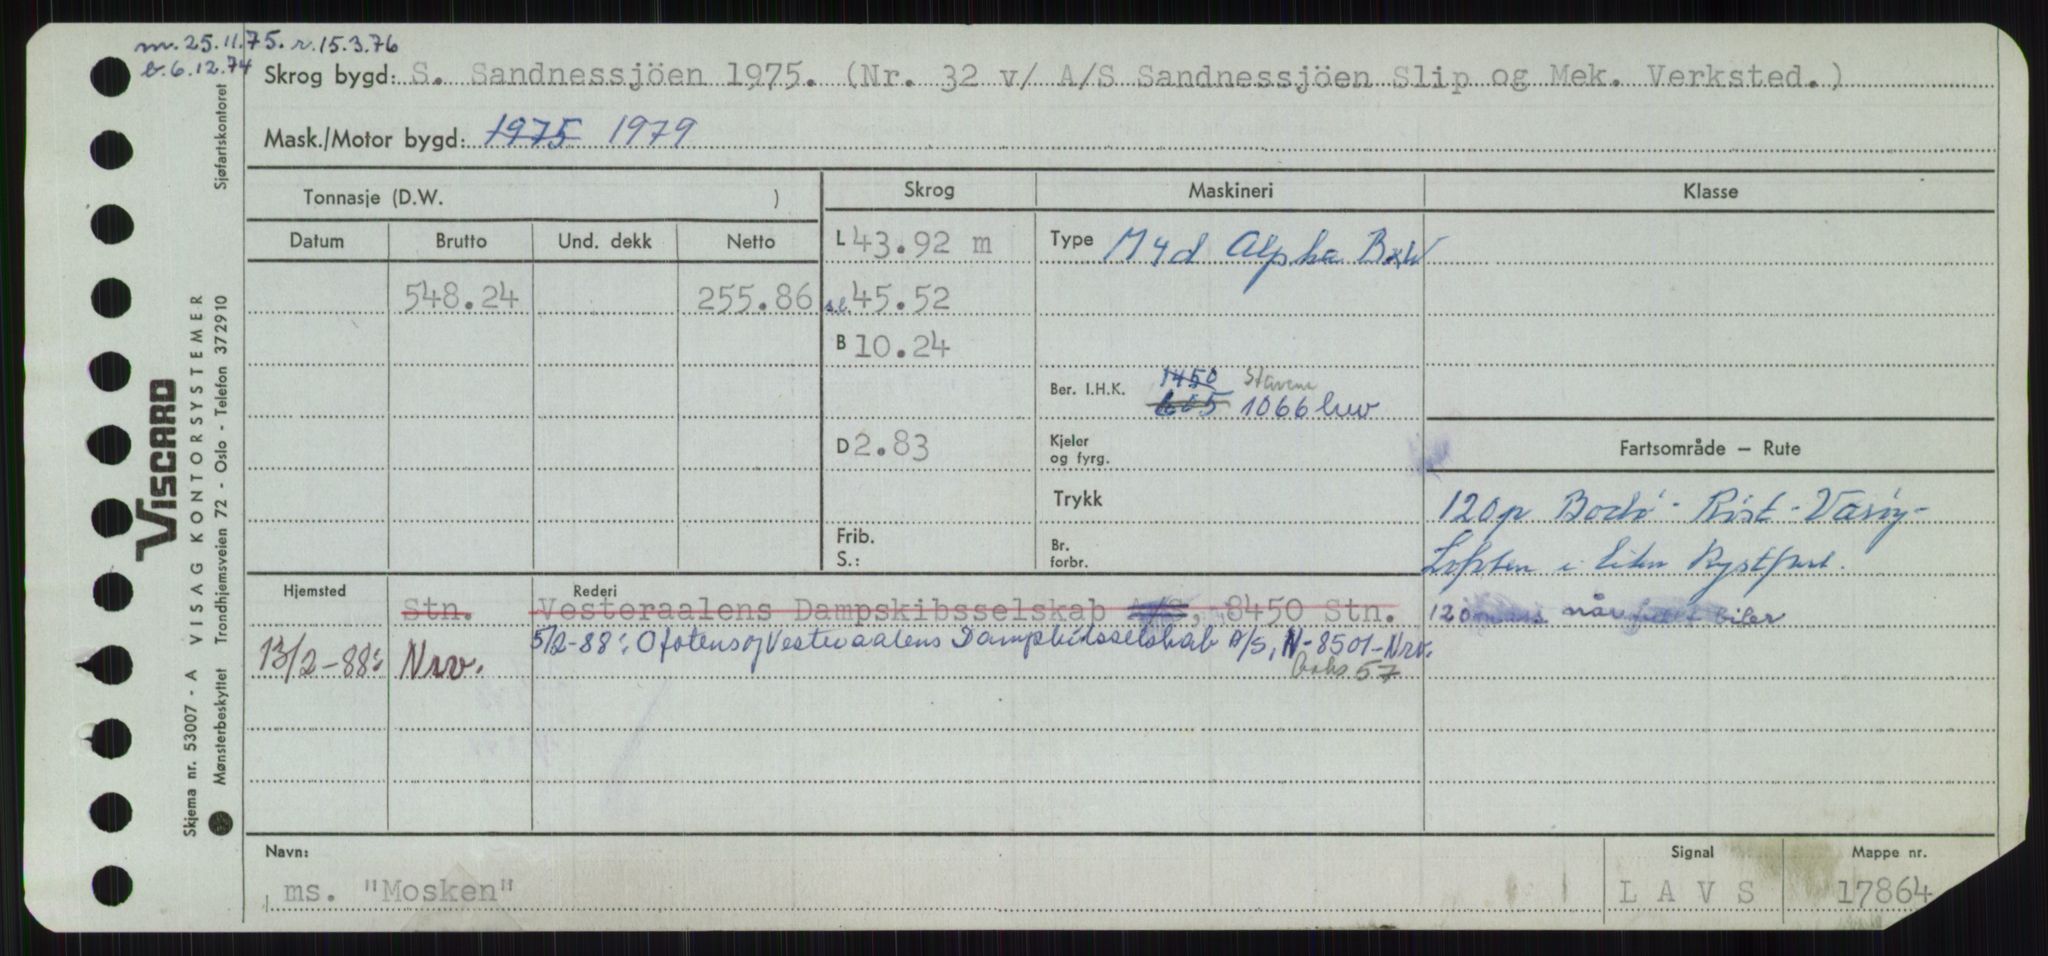 m. 25.11.75. r. 15.3.76
b. 6.12.74
Skrog bygd: S. Sandnessjöen 1975. (Nr. 32 v/ A/S Sandnessjöen Slip og Mek. Verksted.)
Mask./Motor bygd: 1975 1979
Tonnasje (D.W. )
Skrog
Maskineri
Klasse
Datum Brutto Und. dekk Netto
L 43.92 m
Type M4d Alpha B&W
548.24 255.86
s.l. 45.52
B 10.24
Ber. I.H.K. 1450
605 1066 hw
D 2.83
Kjeler
og fyrg.
Fartsområde – Rute
Trykk
120p Bodö - Röst - Væröy -
Frib.
S.:
Br.
forbr.
Lofoten i liten kystfart.
Hjemsted
Rederi
Stn. Vesteraalens Dampskibsselskab A/S, 8450 Stn.
120 når biler
13/2-88: Nrv. 5/2-88: Ofotens og Vesteraalens Dampskibsselskab A/S, N-8501-Nrv.
Boks 57
Navn:
ms. "Mosken"
Signal
L A V S
Mappe nr.
17864
VISCARD
Skjema nr. 53007 - A VISAG KONTORSYSTEMER
Mønsterbeskyttet Trondhjemsveien 72 - Oslo - Telefon 372910 Sjøfartskontoret